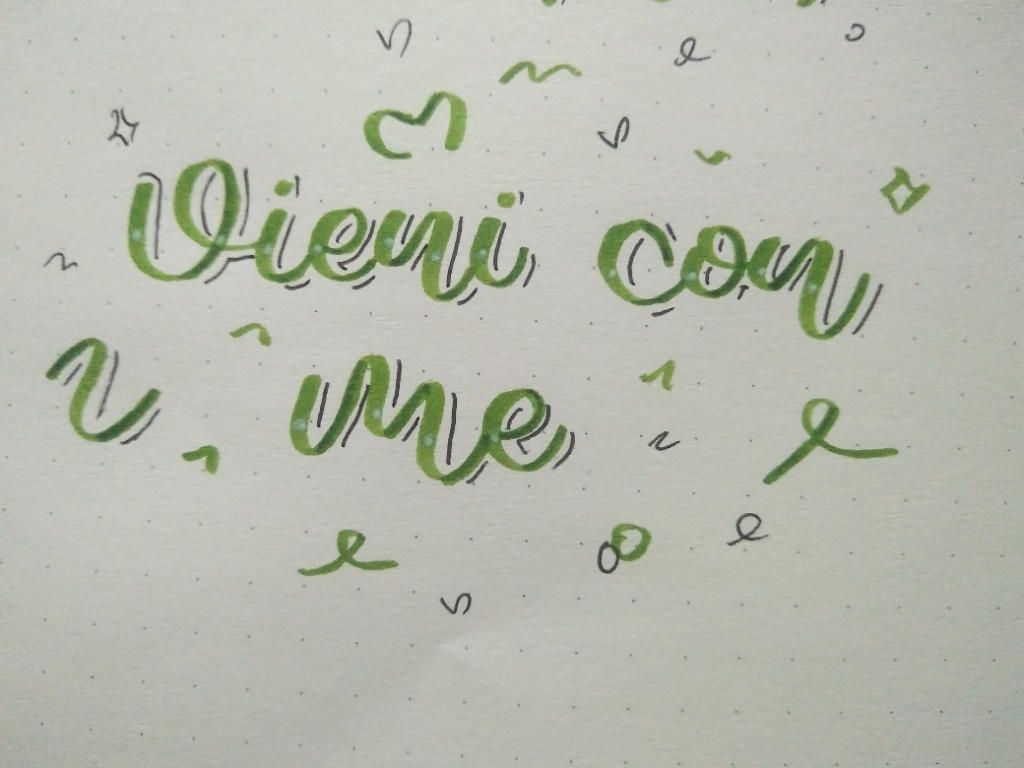 Vieni con
me